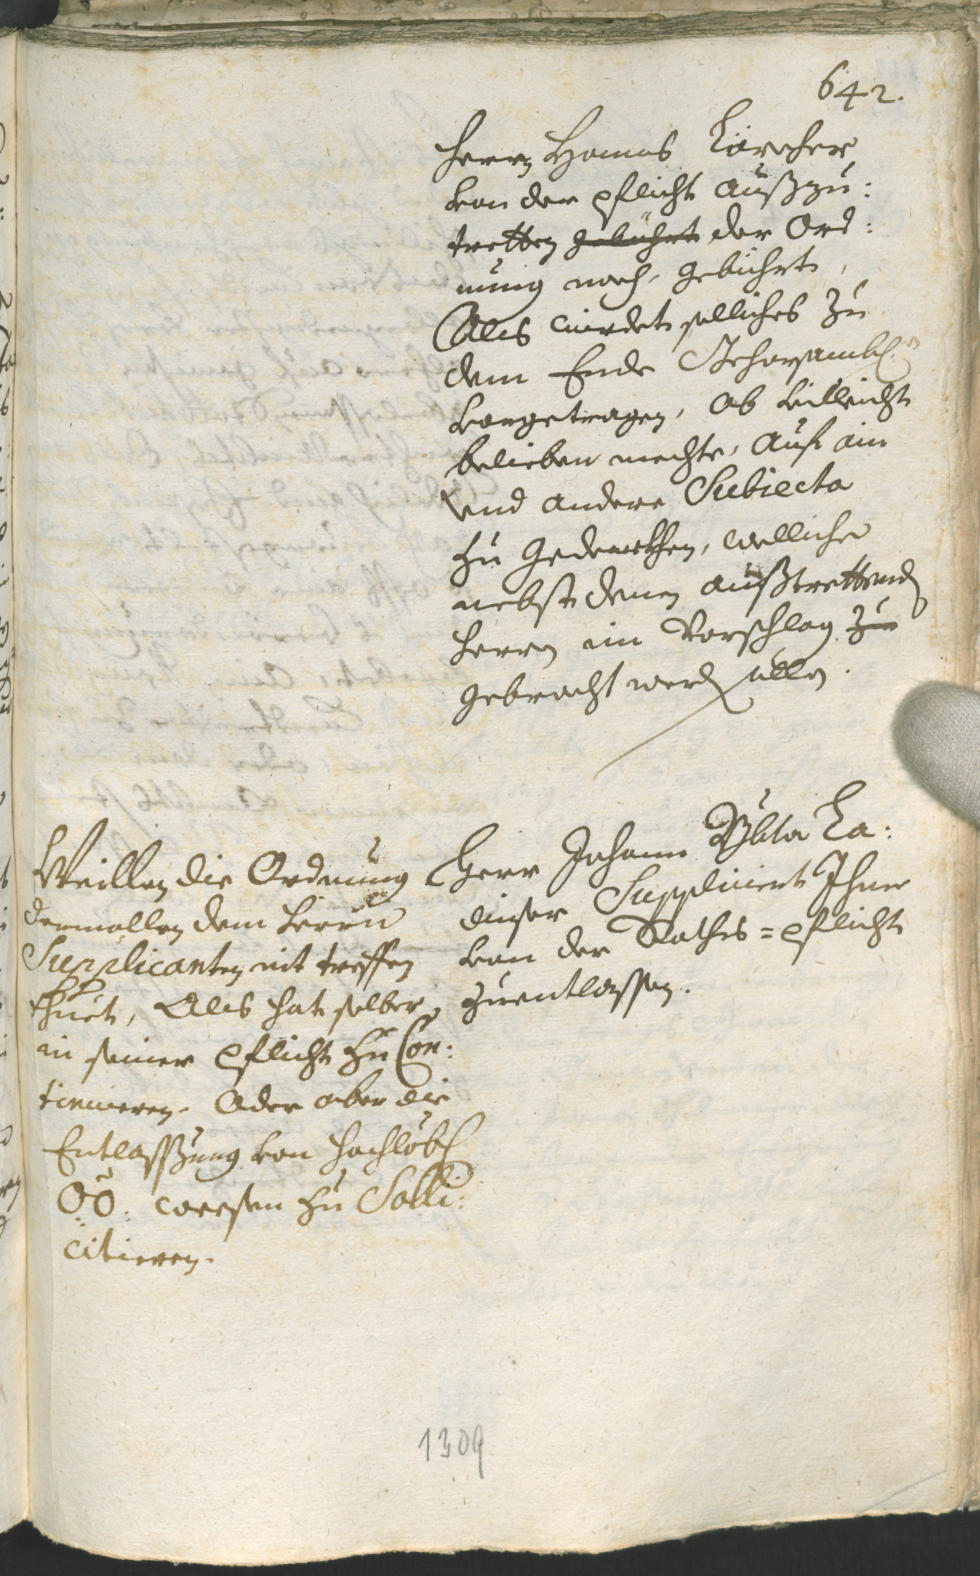 642.
Herrn Thomas Karcher
von der pflicht außzu:
tretten gebührt der Ord:
nung nach, gebührt,
Als würdet solliches zu
dem Ende
vorgetragen, ob villeicht
belieben mechte, auf ain
vnd andere Subiecta
zu gedenckhen, welliche
nebst denen außtrettend
herrn im Vorschlag zu
gebracht werd sollen.
Herr Johann La:
dinser Suppliciert Ihne
von der Raths=pflicht
zuentlassen.
Weillen die Ordnung
dermallen dem herrn
Supplicanten nit treffen
thuet, Als hat selber
in seiner pflicht zu Con:
tinuieren. Oder aber die
Entlassung von hochlöbl
OÖ: weesen zu Solli:
citieren.
1309